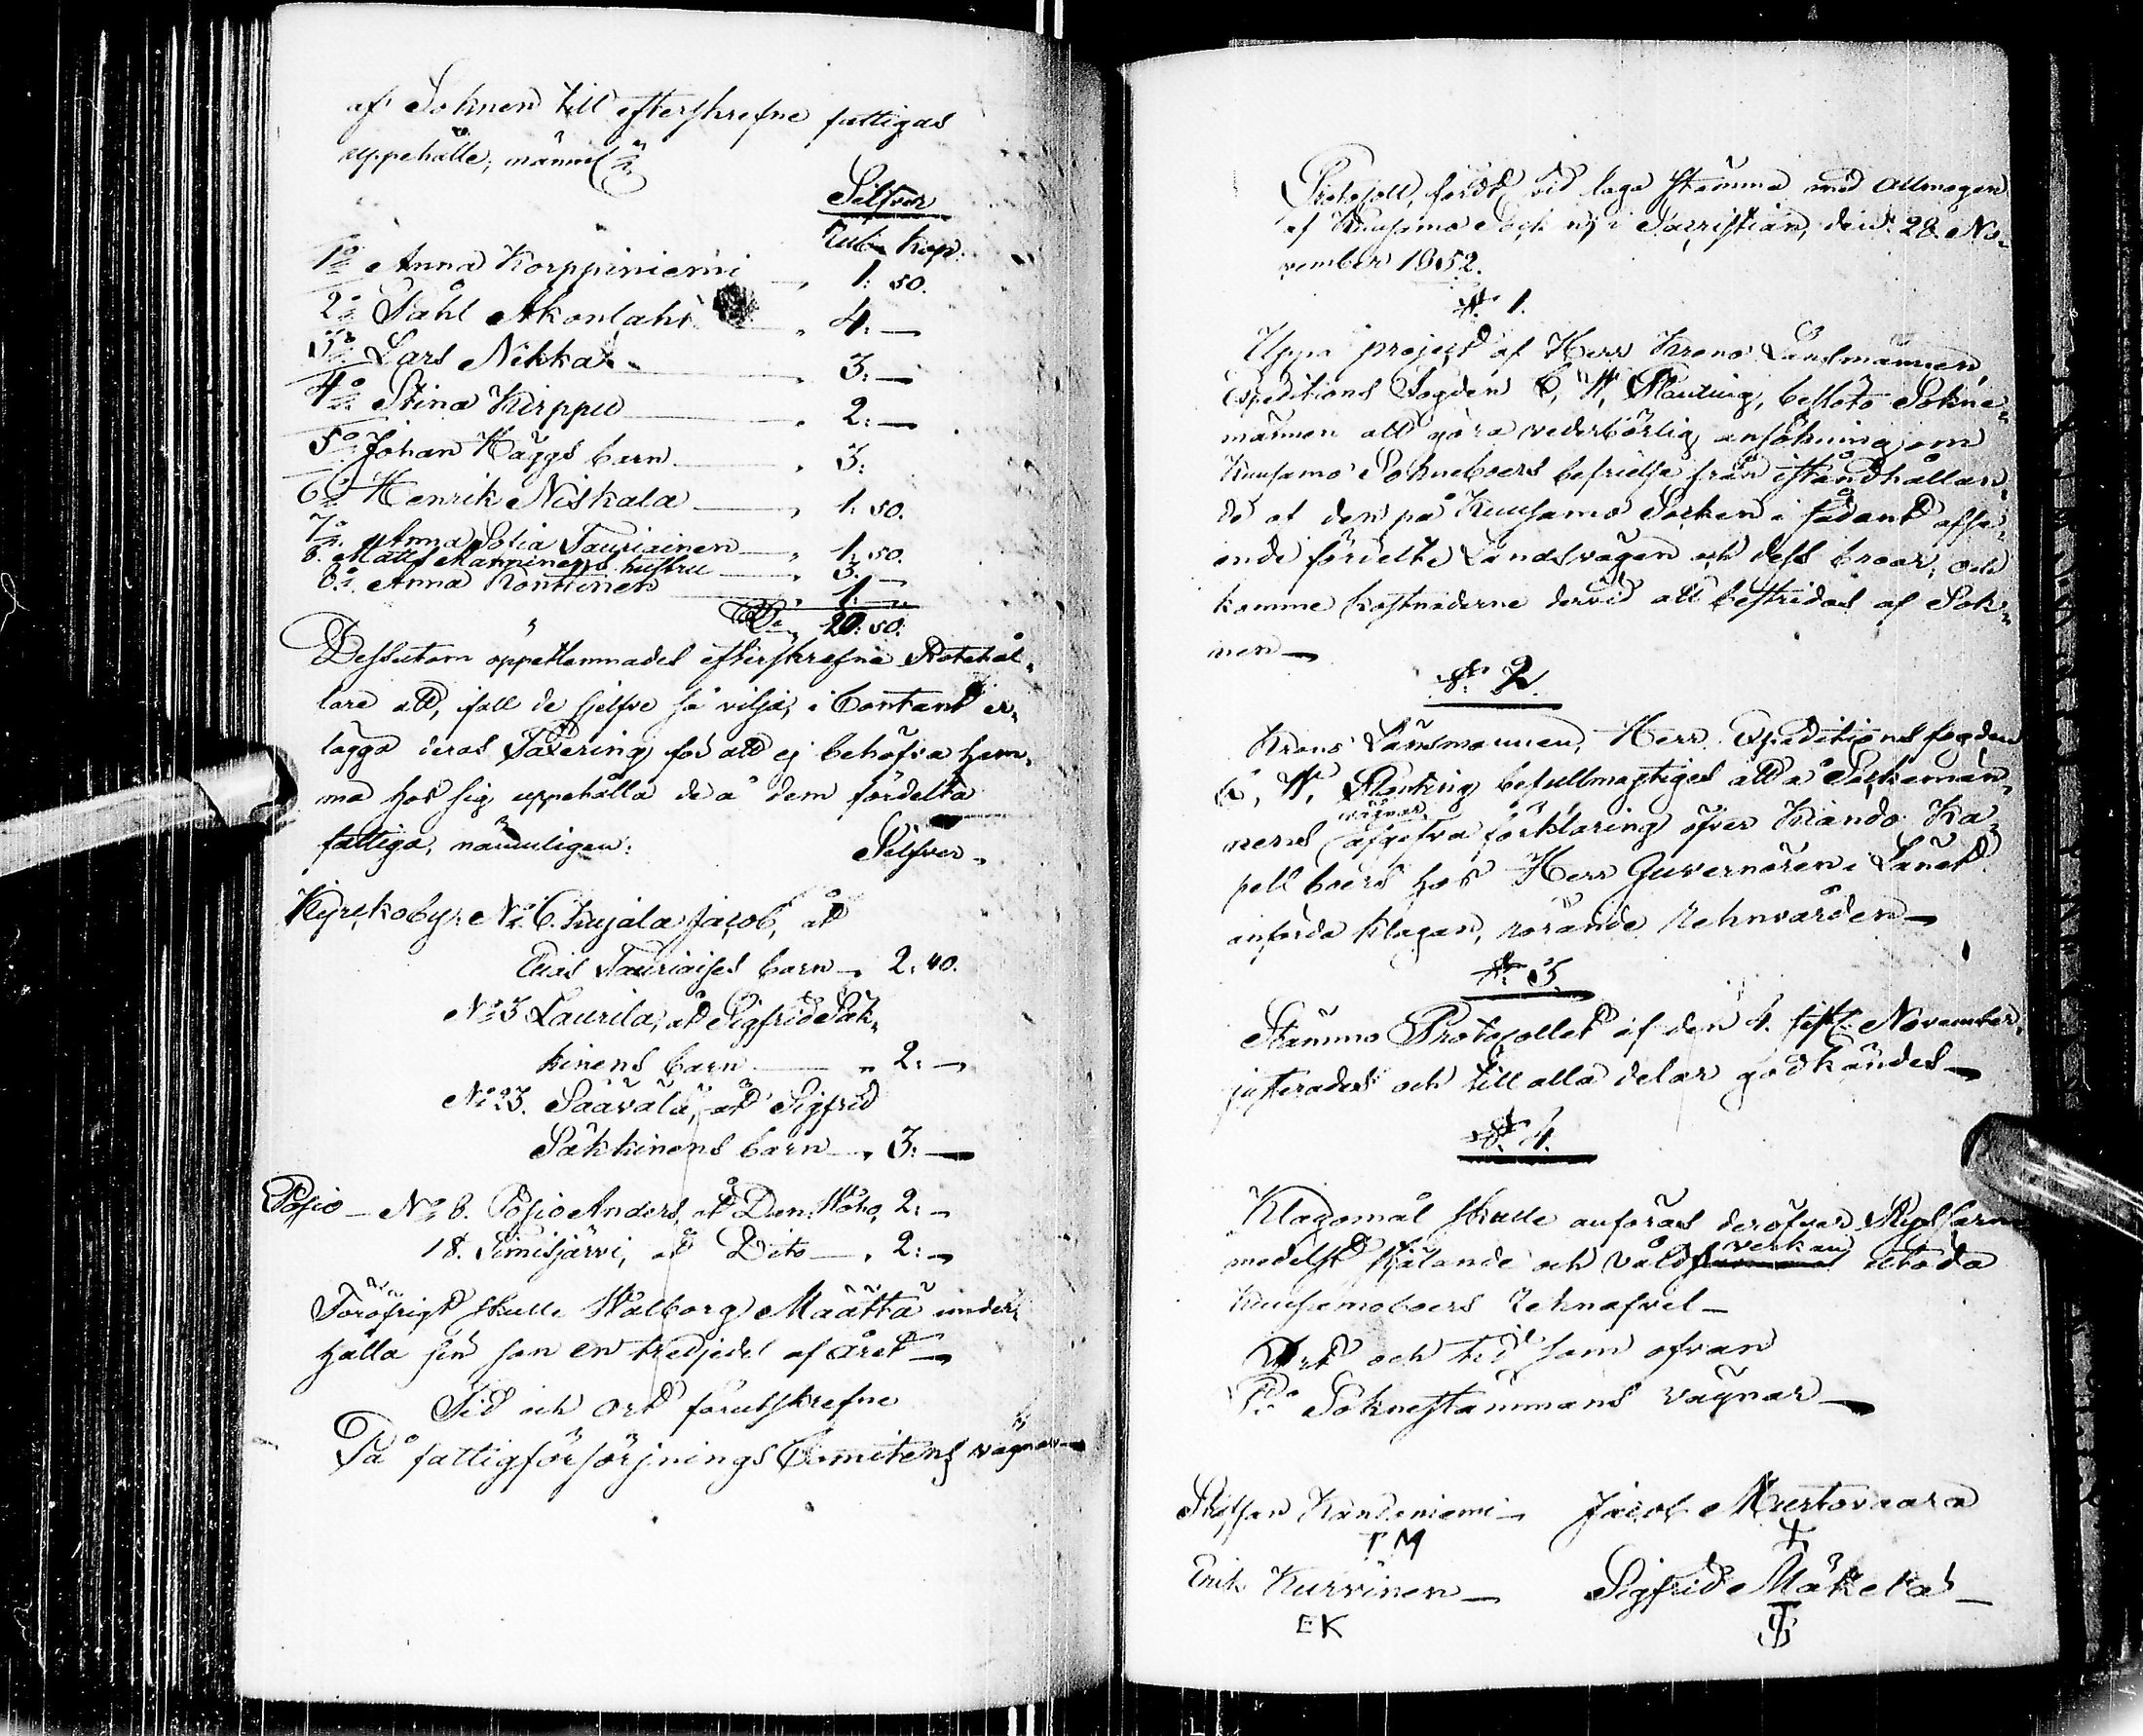 af Soknen till efterskrefne fattigas
uppehälle, nämnl:n
Silfver
Rub. Kop.
1:o Anna Korppiniemi „ 1: 50.
2:o Påhl Akonlahti „ 4: —
3:o Lars Nikka „ 3: —
4:o Stina Kirppu „ 2: —
5:o Johan Häggs barn „ 3:
6:o Henrik Niskala „ 1. 50.
7:o Anna Sofia Tauriainen „ 1. 50.
8. Matts Manninens hustru „ 3. —
8:o Anna Rontinen „ 1. —
20: 50.
Dessutom öppetlemnades efterskrefne Rotehål„
lare att, ifall de sjelfve så vilja, i Contant er„
lägga deras Taxering för att ej behöfva hem„
ma hos sig uppehålla de å dem fördelta
fattiga, nämnligen: Silfver
Kyrkoby, N:o 6. Kujala Jacob, åt
Elias Tauriaises barn „ 2: 40.
N:o 3 Laurila, åt Sigfrid Säk„
kinens barn „ 2: —
N:o 23. Säävälä, åt Sigfrid
Säkkinens barn „ 3: —
Posio — N:o 8. Posio Anders, åt Dan. 2: —
18. Simisjärvi, åt Dito „ 2: —
Föröfrigt skulle Walborg Määttä under„
hålla sin son en tredjedel af året —
Tid och Ort förutskrefne
På fattigförsörjnings Comitens vägnar
Protocoll, fördt vid laga stämma med Allmogen
af Kuusamo Sock n, i Sacristian, den 28. No„
vember 1852.
§. 1.
Uppå project af Herr Krono Länsmannen,
Expeditions Fogden C. W. Planting, beslöto Sokne„
männen att göra vederbörlig ansökning om
Kuusamo Sokneboers befrielse från iståndhållan„
de af den på Kuusamo Socken i sådant afse„
ende fördelte Landsvägen och dess broar, och
komme kostnaderne dervid att bestridas af Sok„
nen —
§. 2.
Krono Länsmannen, Herr Expeditionsfogden
C. W. Planting befullmagtigas att å Sockemän„
nens vägnar afgifva förklaring öfver Kiando Ka„
pell boers hos Herr Guvernören i Länet
anförda klagan, rörande Rehnvården —
§. 3.
Stämmo Protocollet af den 4. sistl. November,
justerades och till alla delar godkändes —
§. 4.
Klagomål skulle anföras deröfver
medelst stjälande och våld verkan utöda
Kuusamoboers Rehnafvel —
Ort och tid som ofvan
På Soknestämmans vägnar —
Staffan Kandeniemi — Jacob Murtovaara
T M
Erik Kurvinen — Sigfrid Mäkelä —
E K